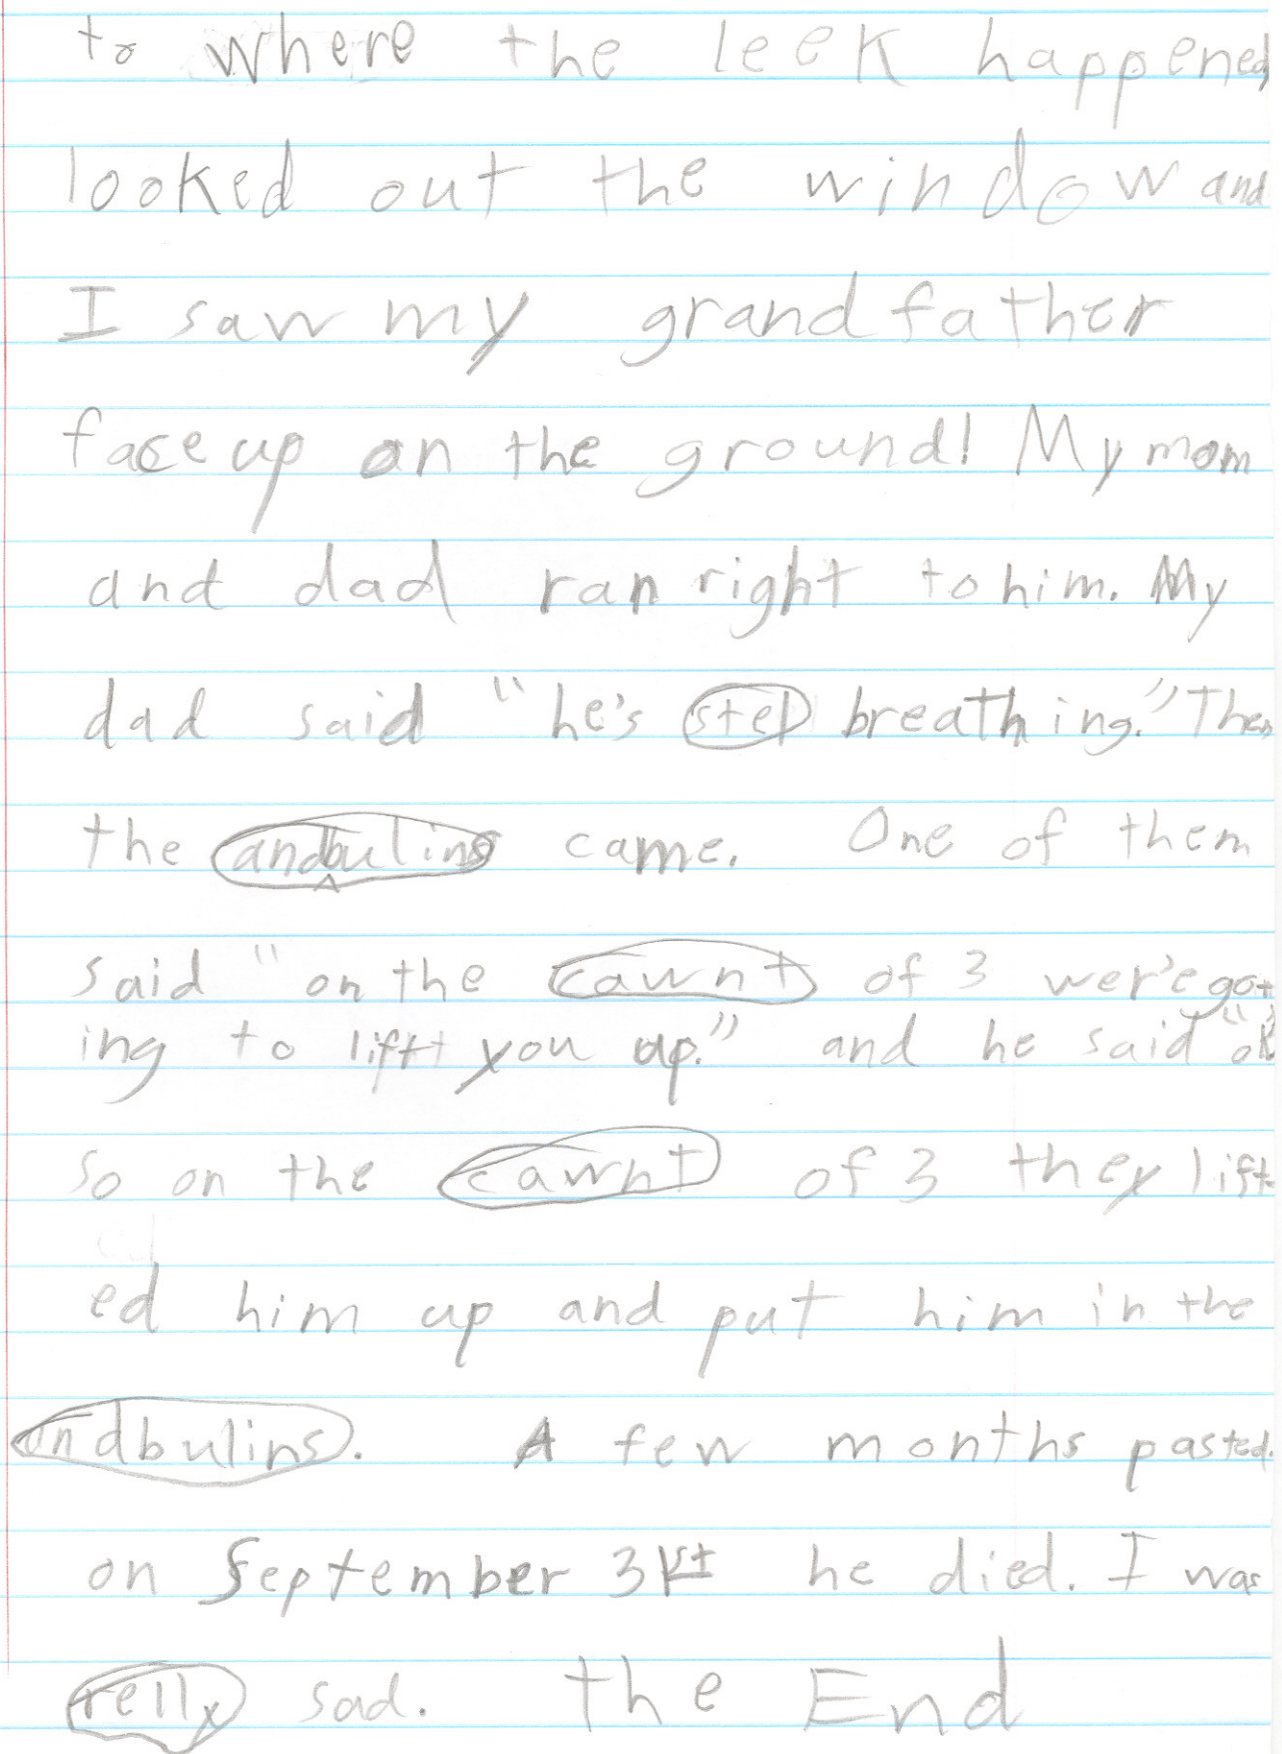 to where the leek happened
looked out the window and
I saw my grandfather
face up on the ground! My mom
and dad ran right to him. My
dad said "he's stel breathing." Then
the andbulins came. One of them
said "on the cawnt of 3 wer'e go
ing to lift you up." and he said "ok"
so on the cawnt of 3 they lift
ed him up and put him in the
andbulins. A few months pasted.
on September 31st he died. I was
relly sad. the End